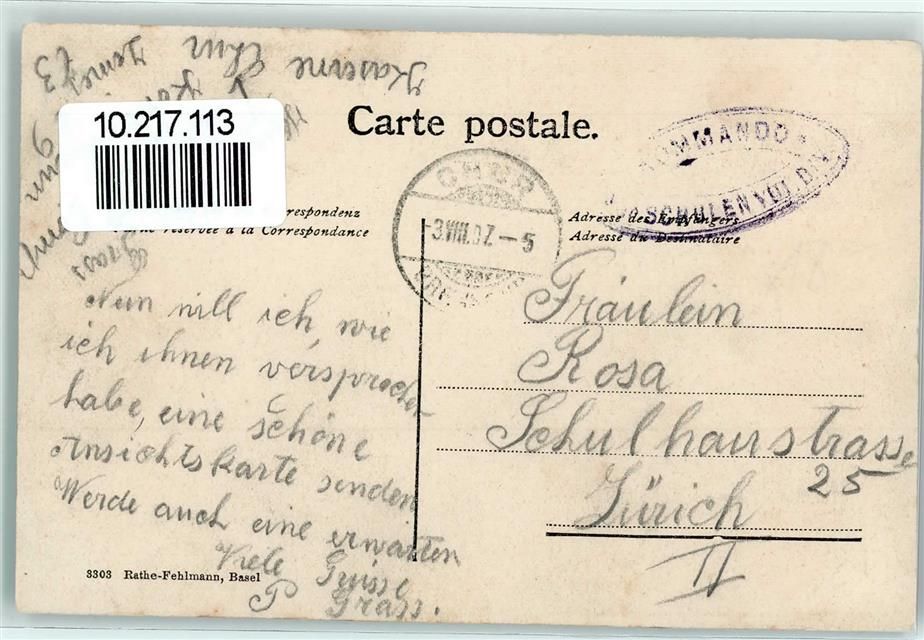 10.217.113
Carte postale.
KOMMANDO
SCHULEN VIII. DIV.
CHUR
-3.VIII.07.-5
respondenz
réservée à la Correspondance
Adresse des Empfängers
Adresse du Destinataire
Kaserne Chur
Zimer 73
Grass
Nun will ich, wie
ich ihnen versprochen
habe, eine schöne
Ansichtskarte senden
Werde auch eine erwarten
Viele Grüsse
P Grass.
Fräulein
Rosa
Schulhausstrasse
25
Zürich
II
3303 Rathe-Fehlmann, Basel